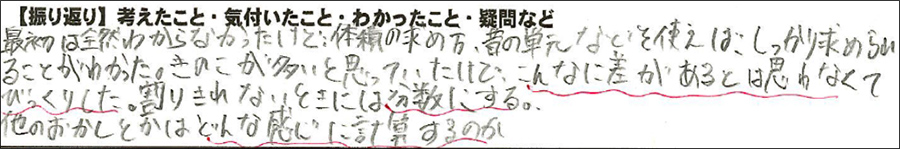 【振り返り】考えたこと・気付いたこと・わかったこと・疑問など
最初は全然わからなかったけど、体積の求め方、昔の単元などを使えば、しっかり求められ
ることがわかった。きのこが多いと思っていたけど、こんなに差があるとは思わなくて
びっくりした。割りきれないときには分数にする。
他のおかしとかはどんな感じに計算するのか